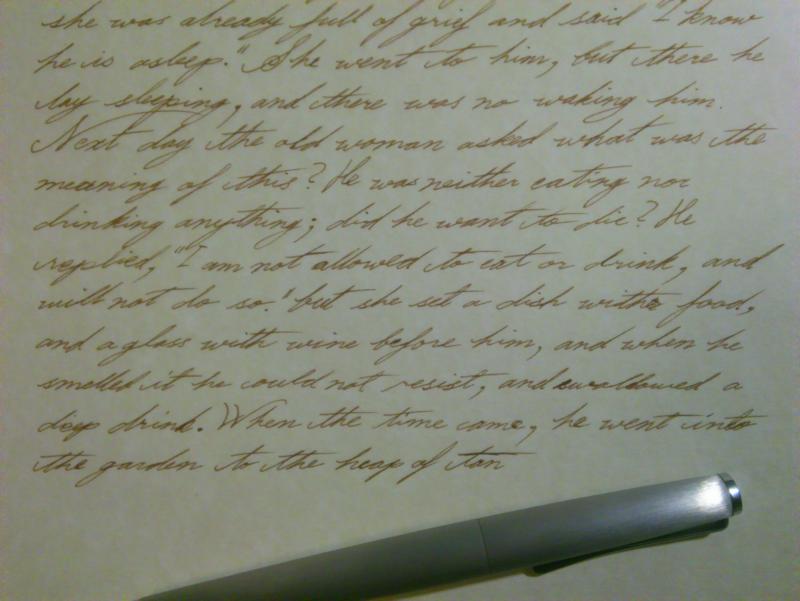 she was already full of grief and said "I know
he is asleep." She went to him, but there he
lay sleeping, and there was no waking him.
Next day the old woman asked what was the
meaning of this? He was neither eating nor
drinking anything; did he want to die? He
replied, "I am not allowed to eat or drink, and
will not do so." but she set a dish with food,
and a glass with wine before him, and when he
smelled it he could not resist, and swallowed a
deep drink. When the time came, he went into
the garden to the heap of tan